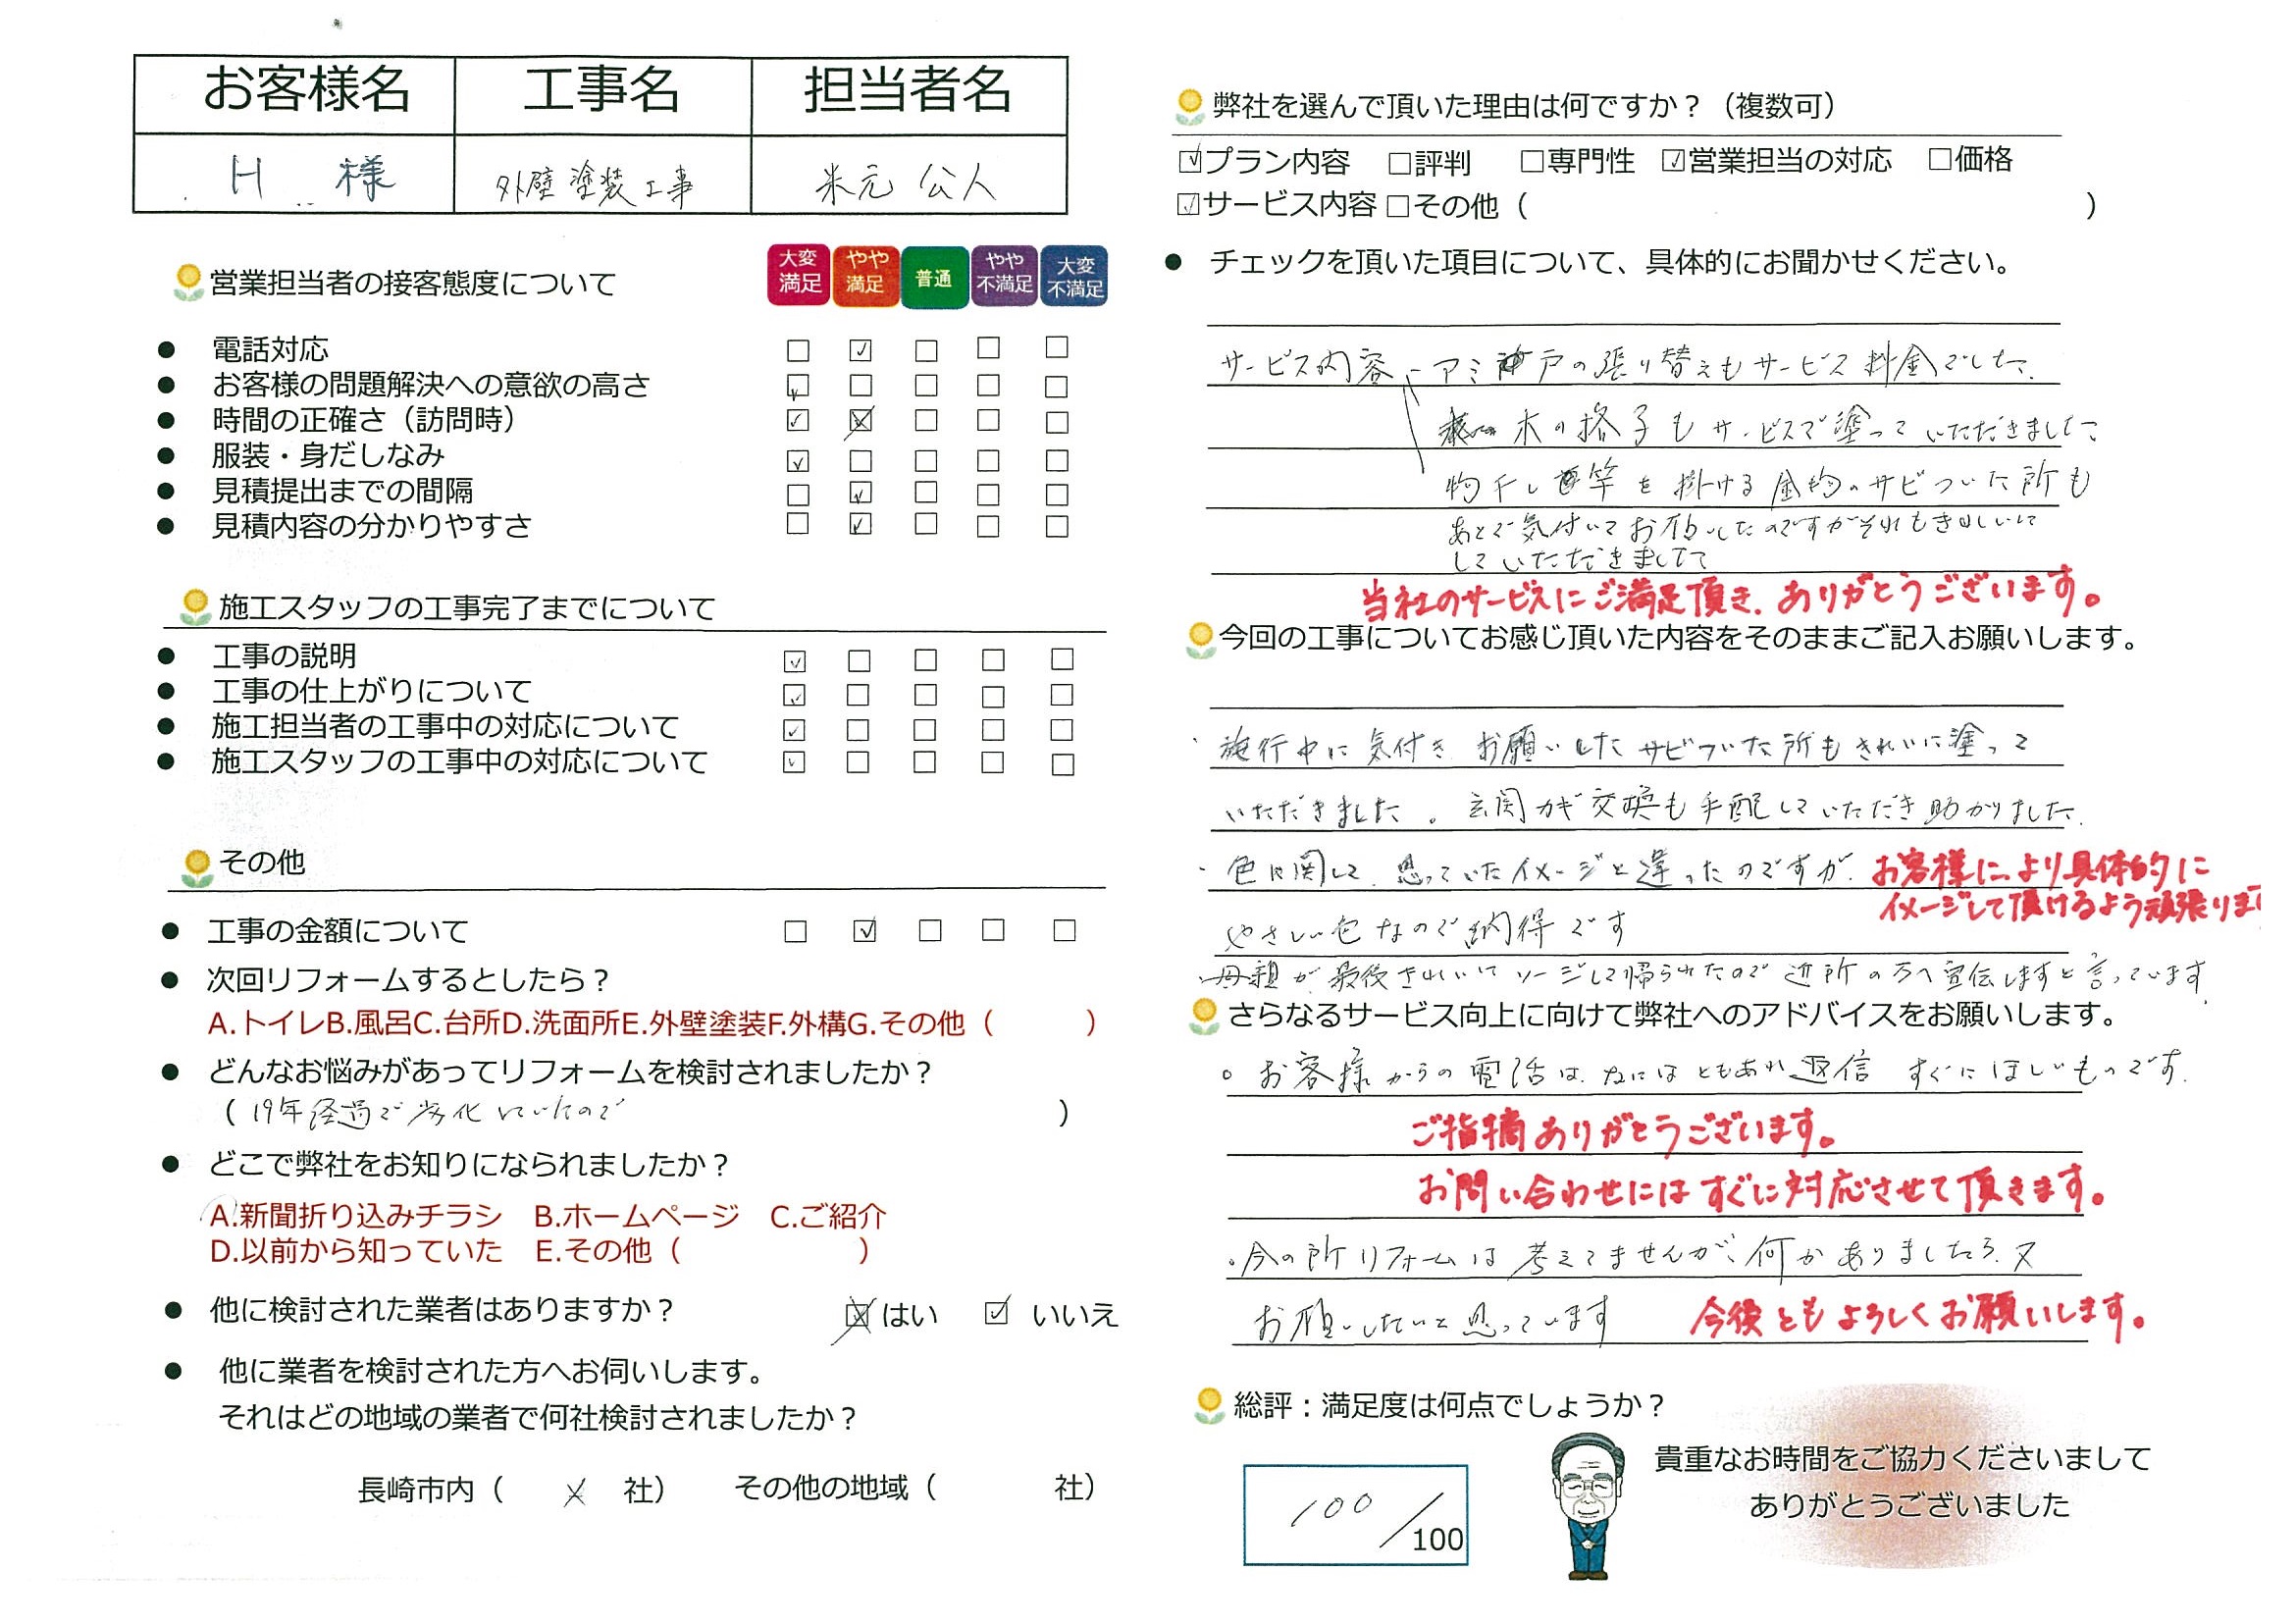 お客様名 工事名 担当者名
H 様 外壁塗装工事 米元 公人
営業担当者の接客態度について
大変満足 やや満足 普通 やや不満足 大変不満足
● 電話対応 □ ☑ □ □ □
● お客様の問題解決への意欲の高さ ☑ □ □ □ □
● 時間の正確さ（訪問時） ☑ ☒ □ □ □
● 服装・身だしなみ ☑ □ □ □ □
● 見積提出までの間隔 □ ☑ □ □ □
● 見積内容の分かりやすさ □ ☑ □ □ □
施工スタッフの工事完了までについて
● 工事の説明 ☑ □ □ □ □
● 工事の仕上がりについて ☑ □ □ □ □
● 施工担当者の工事中の対応について ☑ □ □ □ □
● 施工スタッフの工事中の対応について ☑ □ □ □ □
その他
● 工事の金額について □ ☑ □ □ □
● 次回リフォームするとしたら？
A.トイレB.風呂C.台所D.洗面所E.外壁塗装F.外構G.その他（ ）
● どんなお悩みがあってリフォームを検討されましたか？
（19年経過で劣化していたので ）
● どこで弊社をお知りになられましたか？
A.新聞折り込みチラシ B.ホームページ C.ご紹介
D.以前から知っていた E.その他（ ）
● 他に検討された業者はありますか？ ☒はい ☑ いいえ
● 他に業者を検討された方へお伺いします。
それはどの地域の業者で何社検討されましたか？
長崎市内（ 社） その他の地域（ 社）
弊社を選んで頂いた理由は何ですか？（複数可）
☑プラン内容 □評判 □専門性 ☑営業担当の対応 □価格
☑サービス内容 □その他（ ）
● チェックを頂いた項目について、具体的にお聞かせください。
サービス内容－アミ戸の張り替えもサービス料金でした。
木の格子もサービスで塗っていただきまして
物干し竿を掛ける金物のサビついた所も
あとで気付いてお願いしたのですがそれもきれいに
していただきまして
当社のサービスにご満足頂き、ありがとうございます。
今回の工事についてお感じ頂いた内容をそのままご記入お願いします。
・施行中に気付きお願いしたサビついた所もきれいに塗って
いただきました。玄関カギ交換も手配していただき助かりました。
・色に関して、思っていたイメージと違ったのですが、
お客様により具体的に
イメージして頂けるよう頑張りま
やさしい色なので納得です
・母親が最後きれいにソージして帰られたので近所の方へ宣伝しますと言っています。
さらなるサービス向上に向けて弊社へのアドバイスをお願いします。
○ お客様からの電話は、なにはともあれ返信すぐにほしいものです。
ご指摘ありがとうございます。
お問い合わせにはすぐに対応させて頂きます。
・今の所リフォームは考えてませんが、何かありましたら、又
お願いしたいと思っています 今後ともよろしくお願いします。
総評：満足度は何点でしょうか？
100／100
貴重なお時間をご協力くださいまして
ありがとうございました